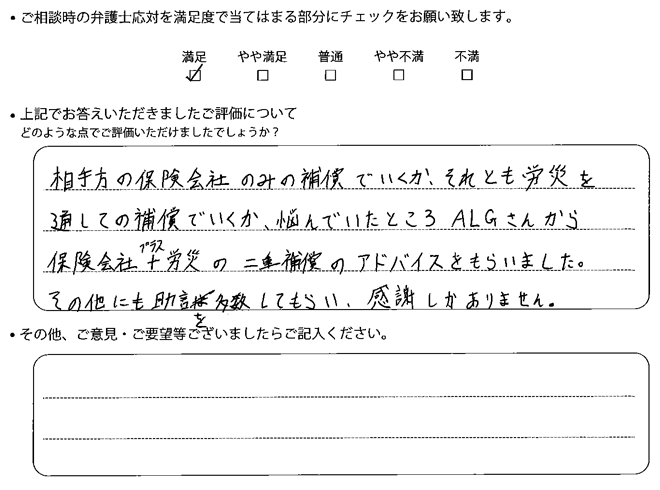 • ご相談時の弁護士応対を満足度で当てはまる部分にチェックをお願い致します。
満足 やや満足 普通 やや不満 不満
• 上記でお答えいただきましたご評価について
どのような点でご評価いただけましたでしょうか？
相手方の保険会社のみの補償でいくか、それとも労災を
通しての補償でいくか、悩んでいたところALGさんから
プラス
保険会社+労災の二重補償のアドバイスをもらいました。
その他にも助言を多数してもらい、感謝しかありません。
• その他、ご意見・ご要望等ございましたらご記入ください。